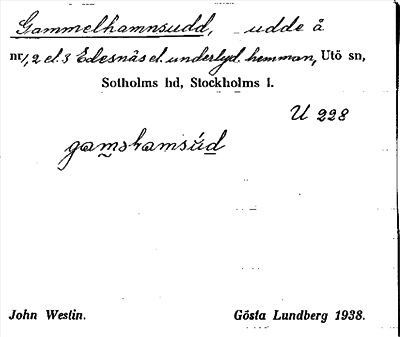 Gammelhamnsudd, udde å
nr 1, 2 el. 3 Edesnäs el. underlyd. hemman, Utö sn,
Sotholms hd, Stockholms l.
U 228
gamshamsúd
John Westin. Gösta Lundberg 1938.